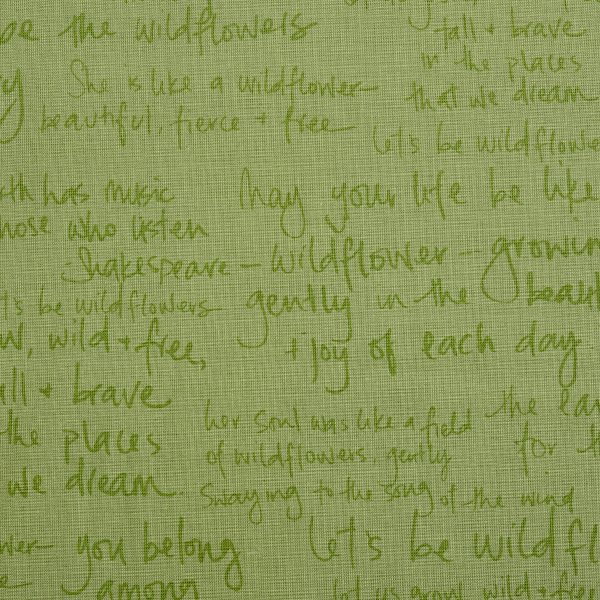 be the wildflowers
tall + brave
in the places
that we dream
She is like a wildflower
beautiful, fierce + free
let's be wildflowe
rth has music
hose who listen
- Shakespeare
May your life be like
wildflower -- growin
gently in the beaut
+ joy of each day
t's be wildflowers
wild + free,
all + brave
the places
we dream.
her soul was like a field
of wildflowers, gently
swaying to the song of the wind
the ear
for th
wer
you belong
among
let's be wildfl
let us grow, wild + free